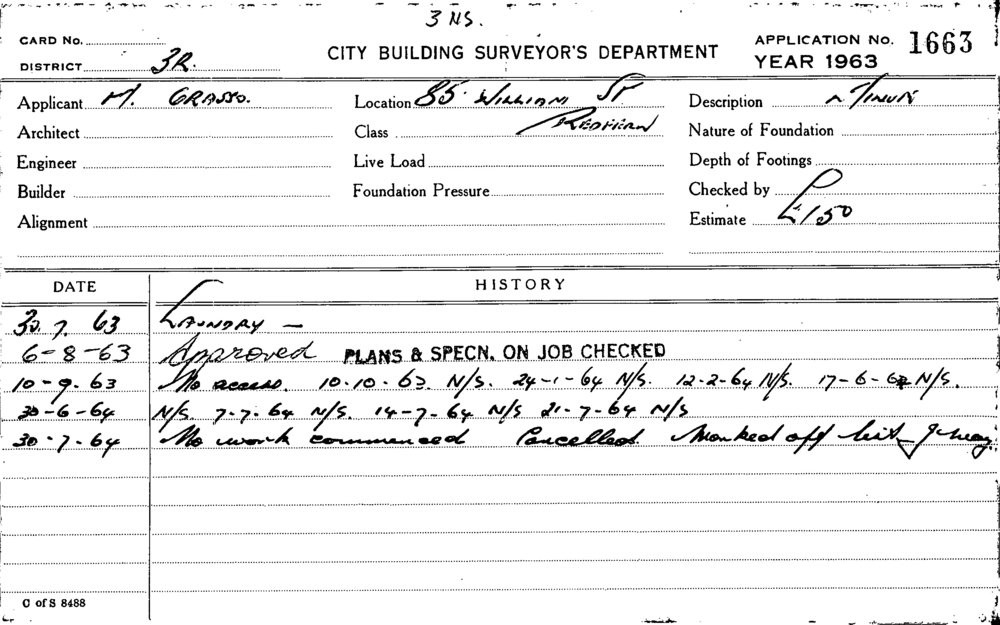 3 NS.
CARD No.
CITY BUILDING SURVEYOR'S DEPARTMENT
APPLICATION No. 1663
DISTRICT 3R.
YEAR 1963
Applicant M. GRASSO.
Location 85 WILLIAM ST
REDFERN
Description
Architect
Class
Nature of Foundation
Engineer
Live Load
Depth of Footings
Builder
Foundation Pressure
Checked by
Alignment
Estimate £150
DATE HISTORY
30. 7. 63 LAUNDRY —
6-8-63 Approved PLANS & SPECN. ON JOB CHECKED
10-9-63 No access. 10-10-63. N/S. 24-1-64 N/S. 12-2-64 N/S. 17-6-64 N/S.
30-6-64 N/S. 7-7-64 N/S. 14-7-64 N/S 21-7-64 N/S
30-7-64 No work commenced Cancelled Marked off list
C of S 8488